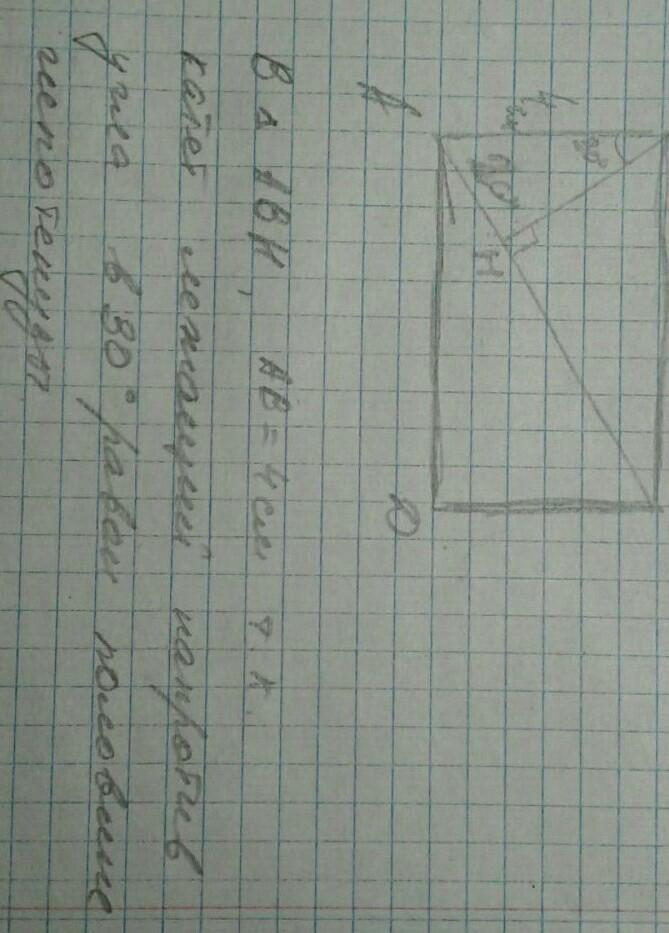 4 см
30°
60°
H
A
D
В △ ABH, AB = 4 см т. к.
катет лежащий напротив
угла в 30° равен половине
гипотенузы.